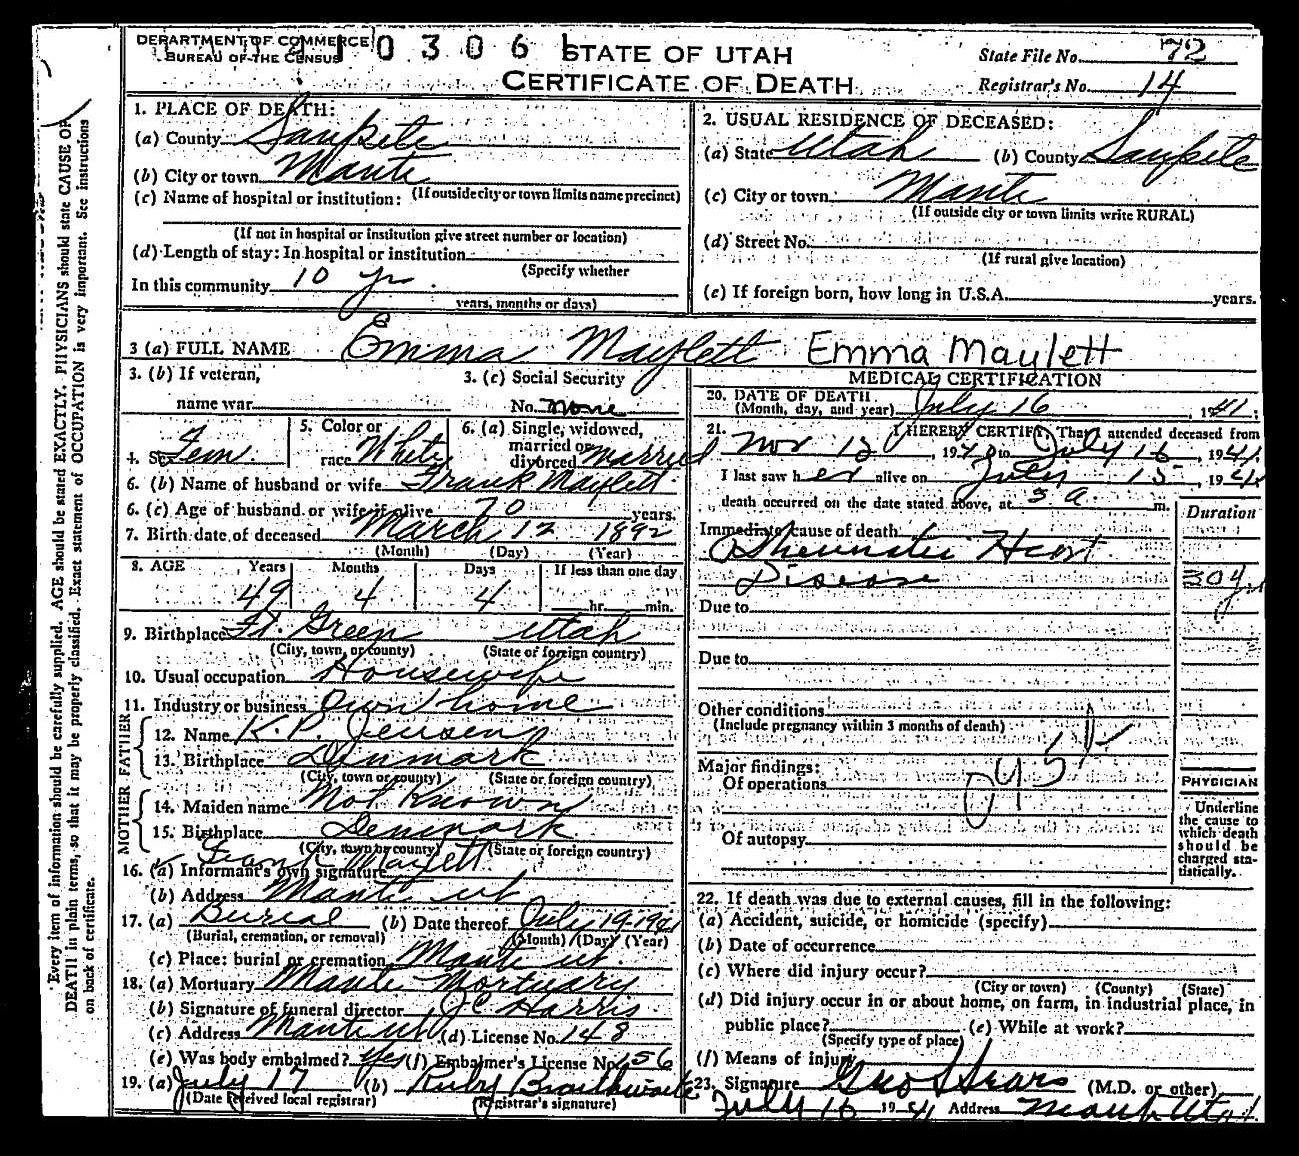 DEPARTMENT OF COMMERCE
BUREAU OF THE CENSUS
0306
STATE OF UTAH
CERTIFICATE OF DEATH
State File No. 72
Registrar's No. 14
1. PLACE OF DEATH:
(a) County Sanpete
(b) City or town Manti
(If outside city or town limits name precinct)
(c) Name of hospital or institution:
(If not in hospital or institution give street number or location)
(d) Length of stay: In hospital or institution
(Specify whether
In this community 10 yr.
years, months or days)
2. USUAL RESIDENCE OF DECEASED:
(a) State Utah (b) County Sanpete
(c) City or town Manti
(If outside city or town limits write RURAL)
(d) Street No.
(If rural give location)
(e) If foreign born, how long in U.S.A. years.
3 (a) FULL NAME Emma Maylett Emma Maylett
3. (b) If veteran,
name war
3. (c) Social Security
No. None
4. Sex Fem.
5. Color or
race White
6. (a) Single, widowed,
married or
divorced Married
6. (b) Name of husband or wife Frank Maylett
6. (c) Age of husband or wife if alive 70 years.
7. Birth date of deceased March 12 1892
(Month) (Day) (Year)
8. AGE Years Months Days If less than one day
49 4 4 hr. min.
9. Birthplace Ft. Green Utah
(City, town, or county) (State or foreign country)
10. Usual occupation Housewife
11. Industry or business Own home
FATHER
12. Name K. P. Jensen
13. Birthplace Denmark
(City, town or county) (State or foreign country)
MOTHER
14. Maiden name Not Known
15. Birthplace Denmark
(City, town or county) (State or foreign country)
16. (a) Informant's own signature Frank Maylett
(b) Address Manti Ut
17. (a) Burial (b) Date thereof July 19 1941
(Burial, cremation, or removal) (Month) (Day) (Year)
(c) Place: burial or cremation Manti Ut.
18. (a) Mortuary Manti Mortuary
(b) Signature of funeral director J C Harris
(c) Address Manti Ut (d) License No. 148
(e) Was body embalmed? Yes (f) Embalmer's License No. 156
19. (a) July 17 (b) Ruby Braithwaite
(Date received local registrar) (Registrar's signature)
MEDICAL CERTIFICATION
20. DATE OF DEATH
(Month, day, and year) July 16, 1941;
21. I HEREBY CERTIFY, That I attended deceased from
Nov 13, 1940 to July 16, 1941.
I last saw her alive on July 15, 1941
death occurred on the date stated above, at 3 a. m.
Duration
Immediate cause of death
Rheumatic Heart
Disease 30 yrs
Due to
Due to
Other conditions
(Include pregnancy within 3 months of death)
Major findings:
Of operations
Of autopsy
PHYSICIAN
Underline
the cause to
which death
should be
charged sta-
tistically.
22. If death was due to external causes, fill in the following:
(a) Accident, suicide, or homicide (specify)
(b) Date of occurrence
(c) Where did injury occur?
(City or town) (County) (State)
(d) Did injury occur in or about home, on farm, in industrial place, in
public place? (e) While at work?
(Specify type of place)
(f) Means of injury
23. Signature Geo L Sears (M.D. or other)
July 16 1941 Address Manti Utah.
Every item of information should be carefully supplied. AGE should be stated EXACTLY. PHYSICIANS should state CAUSE OF
DEATH in plain terms, so that it may be properly classified. Exact statement of OCCUPATION is very important. See instructions
on back of certificate.